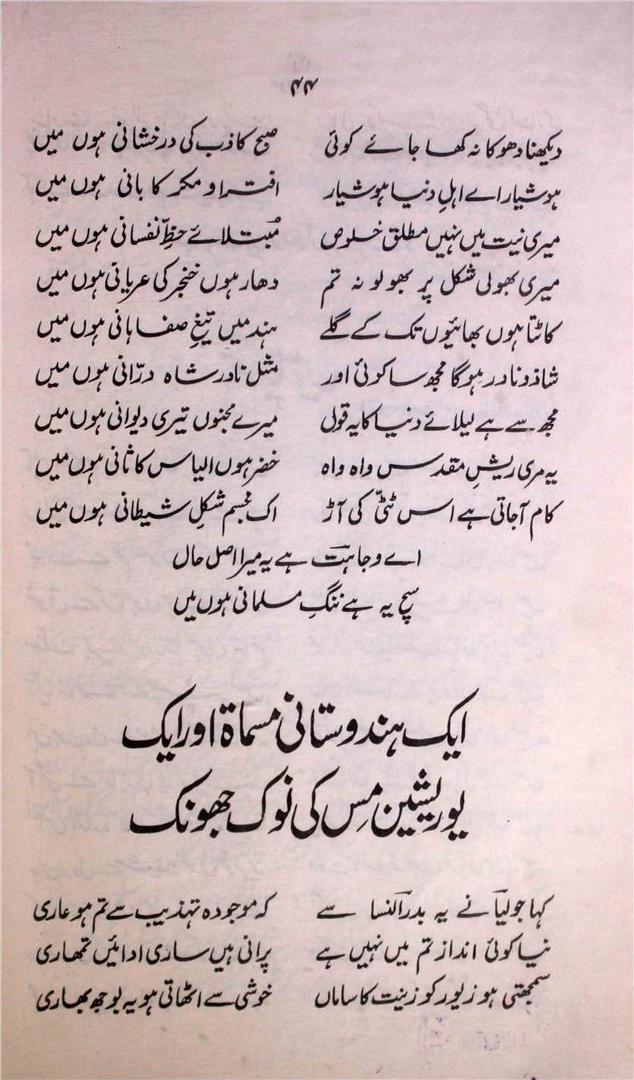 ۴۴
دیکھنا دھوکا نہ کھا جائے کوئی صبح کاذب کی درخشانی ہوں میں
ہوشیار اے اہلِ دنیا ہوشیار افترا و مکر کا بانی ہوں میں
میری نیت میں نہیں مطلق خلوص مبتلائے حظِّ نفسانی ہوں میں
میری بھولی شکل پر بھولو نہ تم دھار ہوں خنجر کی عریانی ہوں میں
کاٹتا ہوں بھائیوں تک کے گلے ہند میں تیغِ صفاہانی ہوں میں
شاذ و نادر ہوگا مجھ سا کوئی اور مثل نادر شاہ درّانی ہوں میں
مجھ سے ہے لیلائے دنیا کا یہ قول میرے مجنوں تیری دیوانی ہوں میں
یہ مری ریشِ مقدس واہ واہ خضر ہوں الیاس کا ثانی ہوں میں
کام آ جاتی ہے اس ٹٹّی کی آڑ اک مجسم شکلِ شیطانی ہوں میں
اے وجاہت ہے یہ میرا اصل حال
سچ یہ ہے ننگِ مسلمانی ہوں میں
ایک ہندوستانی مسماۃ اور ایک
یوریشین مِس کی نوک جھونک
کہا جولیا نے یہ بدرالنسا سے کہ موجودہ تہذیب سے تم ہو عاری
نیا کوئی انداز تم میں نہیں ہے پرانی ہیں ساری ادائیں تمھاری
سمجھتی ہو زیور کو زینت کا ساماں خوشی سے اٹھاتی ہو یہ بوجھ بھاری